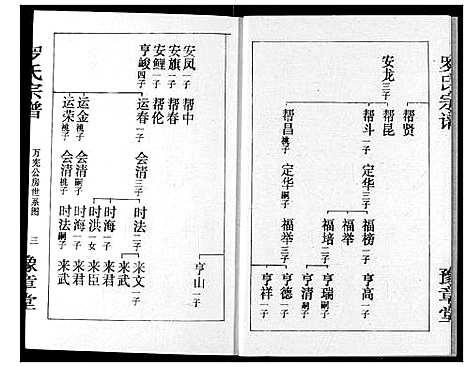 罗氏宗谱
豫章堂
安龙 三子
帮贤
帮昆
帮斗 一子
帮昌 祧子
定华 三子
定华 嗣子
福榜 一子
福举
福培 二子
福举 三子
亨高 一子
亨瑞 嗣子
亨清 嗣子
亨德 一子
亨祥 二子
安凤 一子
安旗 一子
安鲤 一子
亨峻 四子
帮中
帮春
帮伦
运春 一子
运金 祧子
运荣 祧子
会清 三子
会清 嗣子
会清 祧子
时法 二子
时海 一子
时洪 一女
时海 一子
时法 嗣子
亨山 一子
来文 一子
来武
来君
来臣
来君
来武
罗氏宗谱
万宪公房世系图
三
豫章堂